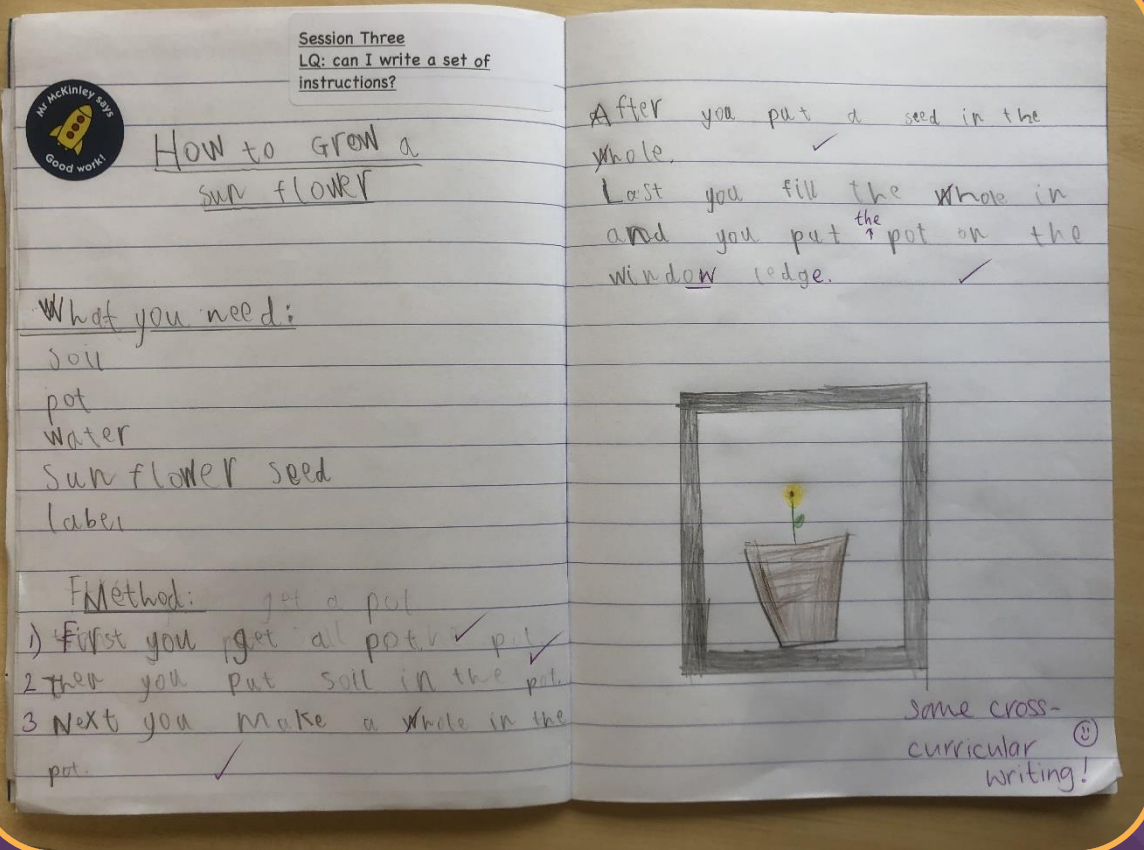 Session Three
LQ: can I write a set of
instructions?
Mr McKinley says
Good work!
How to Grow a
sun flower
What you need:
soil
pot
water
sun flower seed
label
Method: get a pot
1) First you get a pot.
2 Then you put soil in the pot.
3 Next you make a whole in the
pot.
After you put a seed in the
whole.
Last you fill the whole in
and you put the pot on the
window ledge.
some cross-
curricular
writing!